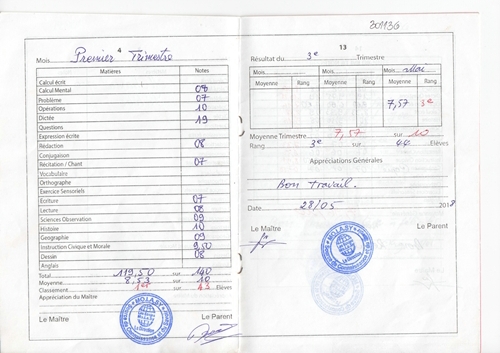 4
Mois Premier Trimestre
Matières Notes
Calcul écrit
Calcul Mental 08
Problème 07
Opérations 10
Dictée 19
Questions
Expression écrite
Rédaction 08
Conjugaison
Récitation / Chant 07
Vocabulaire
Orthographe
Exercice Sensoriels
Ecriture 07
Lecture 08
Sciences Observation 09
Histoire 10
Geographie 09
Instruction Civique et Morale 9,50
Dessin 08
Anglais
Total 119,50 sur 140
Moyenne 8,53 sur 10
Classement 1er sur 43 Elèves
Appréciation du Maître
Le Maître Le Parent
MO.LA.SY
301136
13
Résultat du 3e Trimestre
Mois Mois Mois Mai
Moyenne Rang Moyenne Rang Moyenne Rang
7,57 3e
Moyenne Trimestre 7,57 sur 10
Rang 3e sur 44 Elèves
Appréciations Générales
Bon travail.
Date 28/05 2018
Le Maître Le Parent
MO.LA.SY